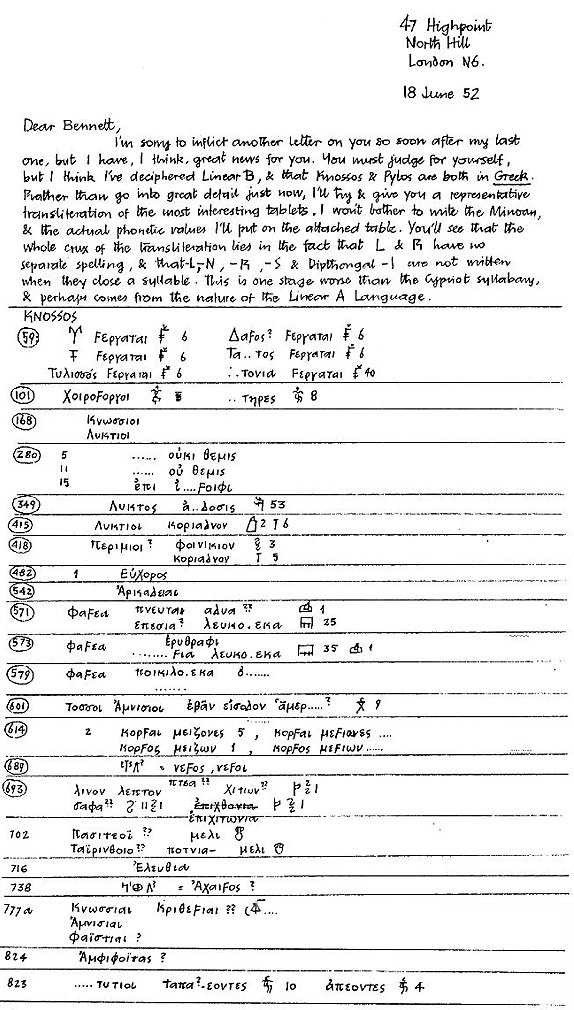 47 Highpoint
North Hill
London N6.
18 June 52
Dear Bennett,
I'm sorry to inflict another letter on you so soon after my last
one, but I have, I think, great news for you. You must judge for yourself,
but I think I've deciphered Linear B, & that Knossos & Pylos are both in Greek.
Rather than go into great detail just now, I'll try & give you a representative
transliteration of the most interesting tablets. I won't bother to write the Minoan,
& the actual phonetic values I'll put on the attached table. You'll see that the
whole crux of the transliteration lies in the fact that L & R have no
separate spelling, & that -L, -N, -R, -S & Dipthongal -I are not written
when they close a syllable. This is one stage worse than the Cypriot syllabary,
& perhaps comes from the nature of the Linear A Language.
KNOSSOS
59: Ϝεργαται 6 Δαϝος? Ϝεργαται 6
Ϝεργαται 6 Τα..τος Ϝεργαται 6
Τυλισσός Ϝεργαται 6 ∴τονια Ϝεργαται 40
101 Χοιροϝοργοι ..τηρες 8
168 Κνωσσιοι
Λυκτιοι
280 5 ...... οὐκι θεμις
11 ...... οὐ θεμις
15 ἐπι ἰ....ϝοιφι
349 Λυκτος ἀ..δοσις 53
415 Λυκτιοι κοριαδνον 2 6
418 Περιμιοι? φοινικιον 3
κοριαδνον 5
482 1 Εὔχορος
542 Ἀρικαδειαι
571 φαϝεα πνευται αδυα?? 1
ἐπεσια? λευκο.εκα 25
573 φαϝεα ἐρυθραφι
........ϝια λευκο.εκα 35 1
579 φαϝεα ποικιλο.εκα δ.......
.......
601 Τοσσοι Ἀμνισιοι ἐβᾶν εἰσοδον ἆμερ.....? 9
614 2 κορϝαι μειζονες 5, κορϝαι μεϝιονες ....
κορϝος μειζων 1, κορϝος μεϝιων......
689 = νεϝος, νεϝοι
693 λινον λεπτον πτεα?? χιτων?? 1
σαφα?? 1 ἐπιχθονια 1
ἐπιχιτωνια
702 Πασιτεοῖ?? μελι
Ταϊρινθοιο?? ποτνια- μελι
716 Ἐλευθια
738 = Ἀχαιϝος?
777a Κνωσσιαι Κριθεϝιαι?? ....
Ἀμνισιαι
Φαϊστιαι?
824 Ἀμφιφοιτας?
823 .....τυτιοι ταπα?-εοντες 10 ἀπεοντες 4